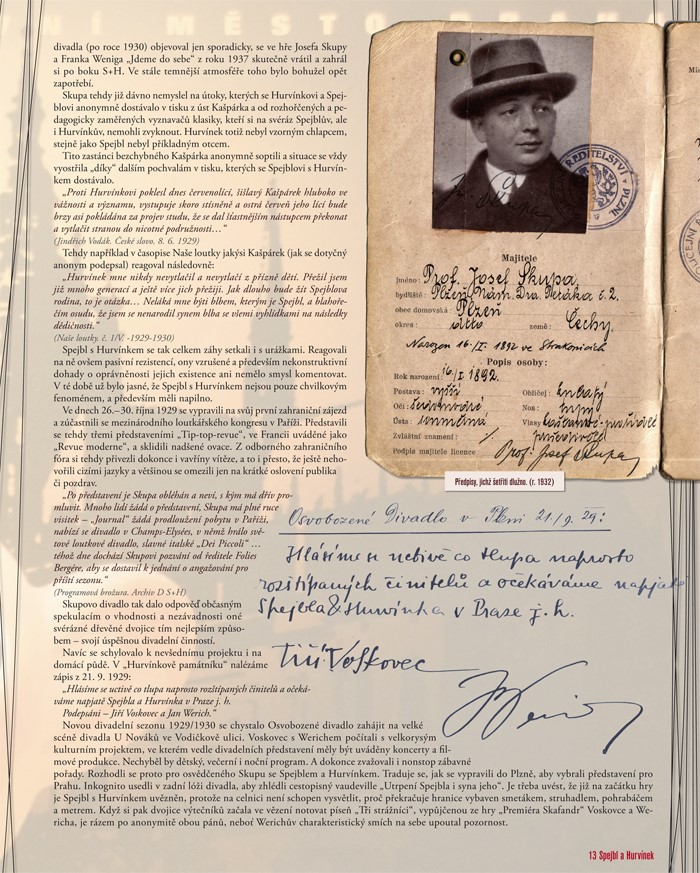 NÍ MĚSTO
divadla (po roce 1930) objevoval jen sporadicky, se ve hře Josefa Skupy
a Franka Weniga „Jdeme do sebe“ z roku 1937 skutečně vrátil a zahrál
si po boku S+H. Ve stále temnější atmosféře toho bylo bohužel opět
zapotřebí.
Skupa tehdy již dávno nemyslel na útoky, kterých se Hurvínkovi a Spej-
blovi anonymně dostávalo v tisku z úst Kašpárka a od rozhořčených a pe-
dagogicky zaměřených vyznavačů klasiky, kteří si na svéráz Spejblův, ale
i Hurvínkův, nemohli zvyknout. Hurvínek totiž nebyl vzorným chlapcem,
stejně jako Spejbl nebyl příkladným otcem.
Tito zastánci bezchybného Kašpárka anonymně soptili a situace se vždy
vyostřila „díky“ dalším pochvalám v tisku, kterých se Spejblovi s Hurvín-
kem dostávalo.
„Proti Hurvínkovi poklesl dnes červenolící, šišlavý Kašpárek hluboko ve
vážnosti a významu, vystupuje skoro stísněně a ostrá červeň jeho lící bude
brzy asi pokládána za projev studu, že se dal šťastnějším nástupcem překonat
a vytlačit stranou do nicotné podružnosti…“
(Jindřich Vodák. České slovo. 8. 6. 1929)
Tehdy například v časopise Naše loutky jakýsi Kašpárek (jak se dotyčný
anonym podepsal) reagoval následovně:
„Hurvínek mne nikdy nevytlačil a nevytlačí z přízně dětí. Přežil jsem
již mnoho generací a ještě více jich přežiji. Jak dlouho bude žít Spejblova
rodina, to je otázka… Neláká mne býti blbem, kterým je Spejbl, a blahoře-
čím osudu, že jsem se nenarodil synem blba se všemi vyhlídkami na následky
dědičnosti.“
(Naše loutky. č. 1/V. -1929-1930)
Spejbl s Hurvínkem se tak celkem záhy setkali i s urážkami. Reagovali
na ně ovšem pasivní rezistencí, ony vzrušené a především nekonstruktivní
dohady o oprávněnosti jejich existence ani nemělo smysl komentovat.
V té době už bylo jasné, že Spejbl s Hurvínkem nejsou pouze chvilkovým
fenoménem, a především měli naplno.
Ve dnech 26.–30. října 1929 se vypravili na svůj první zahraniční zájezd
a zúčastnili se mezinárodního loutkářského kongresu v Paříži. Představili
se tehdy třemi představeními „Tip-top-revue“, ve Francii uváděné jako
„Revue moderne“, a sklidili nadšené ovace. Z odborného zahraničního
fóra si tehdy přivezli dokonce i vavříny vítěze, a to i přesto, že ještě neho-
vořili cizími jazyky a většinou se omezili jen na krátké oslovení publika
či pozdrav.
„Po představení je Skupa obléhán a neví, s kým má dřív pro-
mluvit. Mnoho lidí žádá o představení, Skupa má plné ruce
visitek – „Journal“ žádá prodloužení pobytu v Paříži,
nabízí se divadlo v Champs-Elysées, v němž hrálo svě-
tové loutkové divadlo, slavné italské „Dei Piccoli“ …
téhož dne dochází Skupovi pozvání od ředitele Folies
Bergère, aby se dostavil k jednání o angažování pro
příští sezonu.“
(Programová brožura. Archiv D S+H)
Skupovo divadlo tak dalo odpověď občasným
spekulacím o vhodnosti a nezávadnosti oné
svérázné dřevěné dvojice tím nejlepším způso-
bem – svojí úspěšnou divadelní činností.
Navíc se schylovalo k nevšednímu projektu i na
domácí půdě. V „Hurvínkově památníku“ nalézáme
zápis z 21. 9. 1929:
„Hlásíme se uctivě co tlupa naprosto rozštípaných činitelů a očeká-
váme napjatě Spejbla a Hurvínka v Praze j. h.
Podepsáni – Jiří Voskovec a Jan Werich.“
Novou divadelní sezonu 1929/1930 se chystalo Osvobozené divadlo zahájit na velké
scéně divadla U Nováků ve Vodičkově ulici. Voskovec s Werichem počítali s velkorysým
kulturním projektem, ve kterém vedle divadelních představení měly být uváděny koncerty a fil-
mové produkce. Nechyběl by dětský, večerní i noční program. A dokonce zvažovali i nonstop zábavné
pořady. Rozhodli se proto pro osvědčeného Skupu se Spejblem a Hurvínkem. Traduje se, jak se vypravili do Plzně, aby vybrali představení pro
Prahu. Inkognito usedli v zadní lóži divadla, aby zhlédli cestopisný vaudeville „Utrpení Spejbla i syna jeho“. Je třeba uvést, že již na začátku hry
je Spejbl s Hurvínkem uvězněn, protože na celnici není schopen vysvětlit, proč překračuje hranice vybaven smetákem, struhadlem, pohrabáčem
a metrem. Když si pak dvojice výtečníků začala ve vězení notovat píseň „Tři strážníci“, vypůjčenou ze hry „Premiéra Skafandr“ Voskovce a We-
richa, je rázem po anonymitě obou pánů, neboť Werichův charakteristický smích na sebe upoutal pozornost.
ŘEDITELSTVÍ V PLZNI
Majitele
jméno: Prof. Josef Skupa
bydliště: Plzeň, Nám. Dra. Petáka č. 2.
obec domovská: Plzeň
okres: detto země: Čechy.
Narozen 16/I. 1892 ve Strakonicích
Popis osoby:
Rok narození: 16/I 1892.
Postava: vyšší Obličej: kulatý
Oči: Nos: tupý
Ústa: Vlasy
Zvláštní znamení: /.
Podpis majitele licence Prof. Josef Skupa
Předpisy, jichž šetřiti dlužno. (r. 1932)
Osvobozené Divadlo v Plzni 21/9. 29:
Hlásíme se uctivě co tlupa naprosto
rozštípaných činitelů a očekáváme napjatě
Spejbla & Hurvínka v Praze j. h.
Jiří Voskovec
JWerich
13 Spejbl a Hurvínek